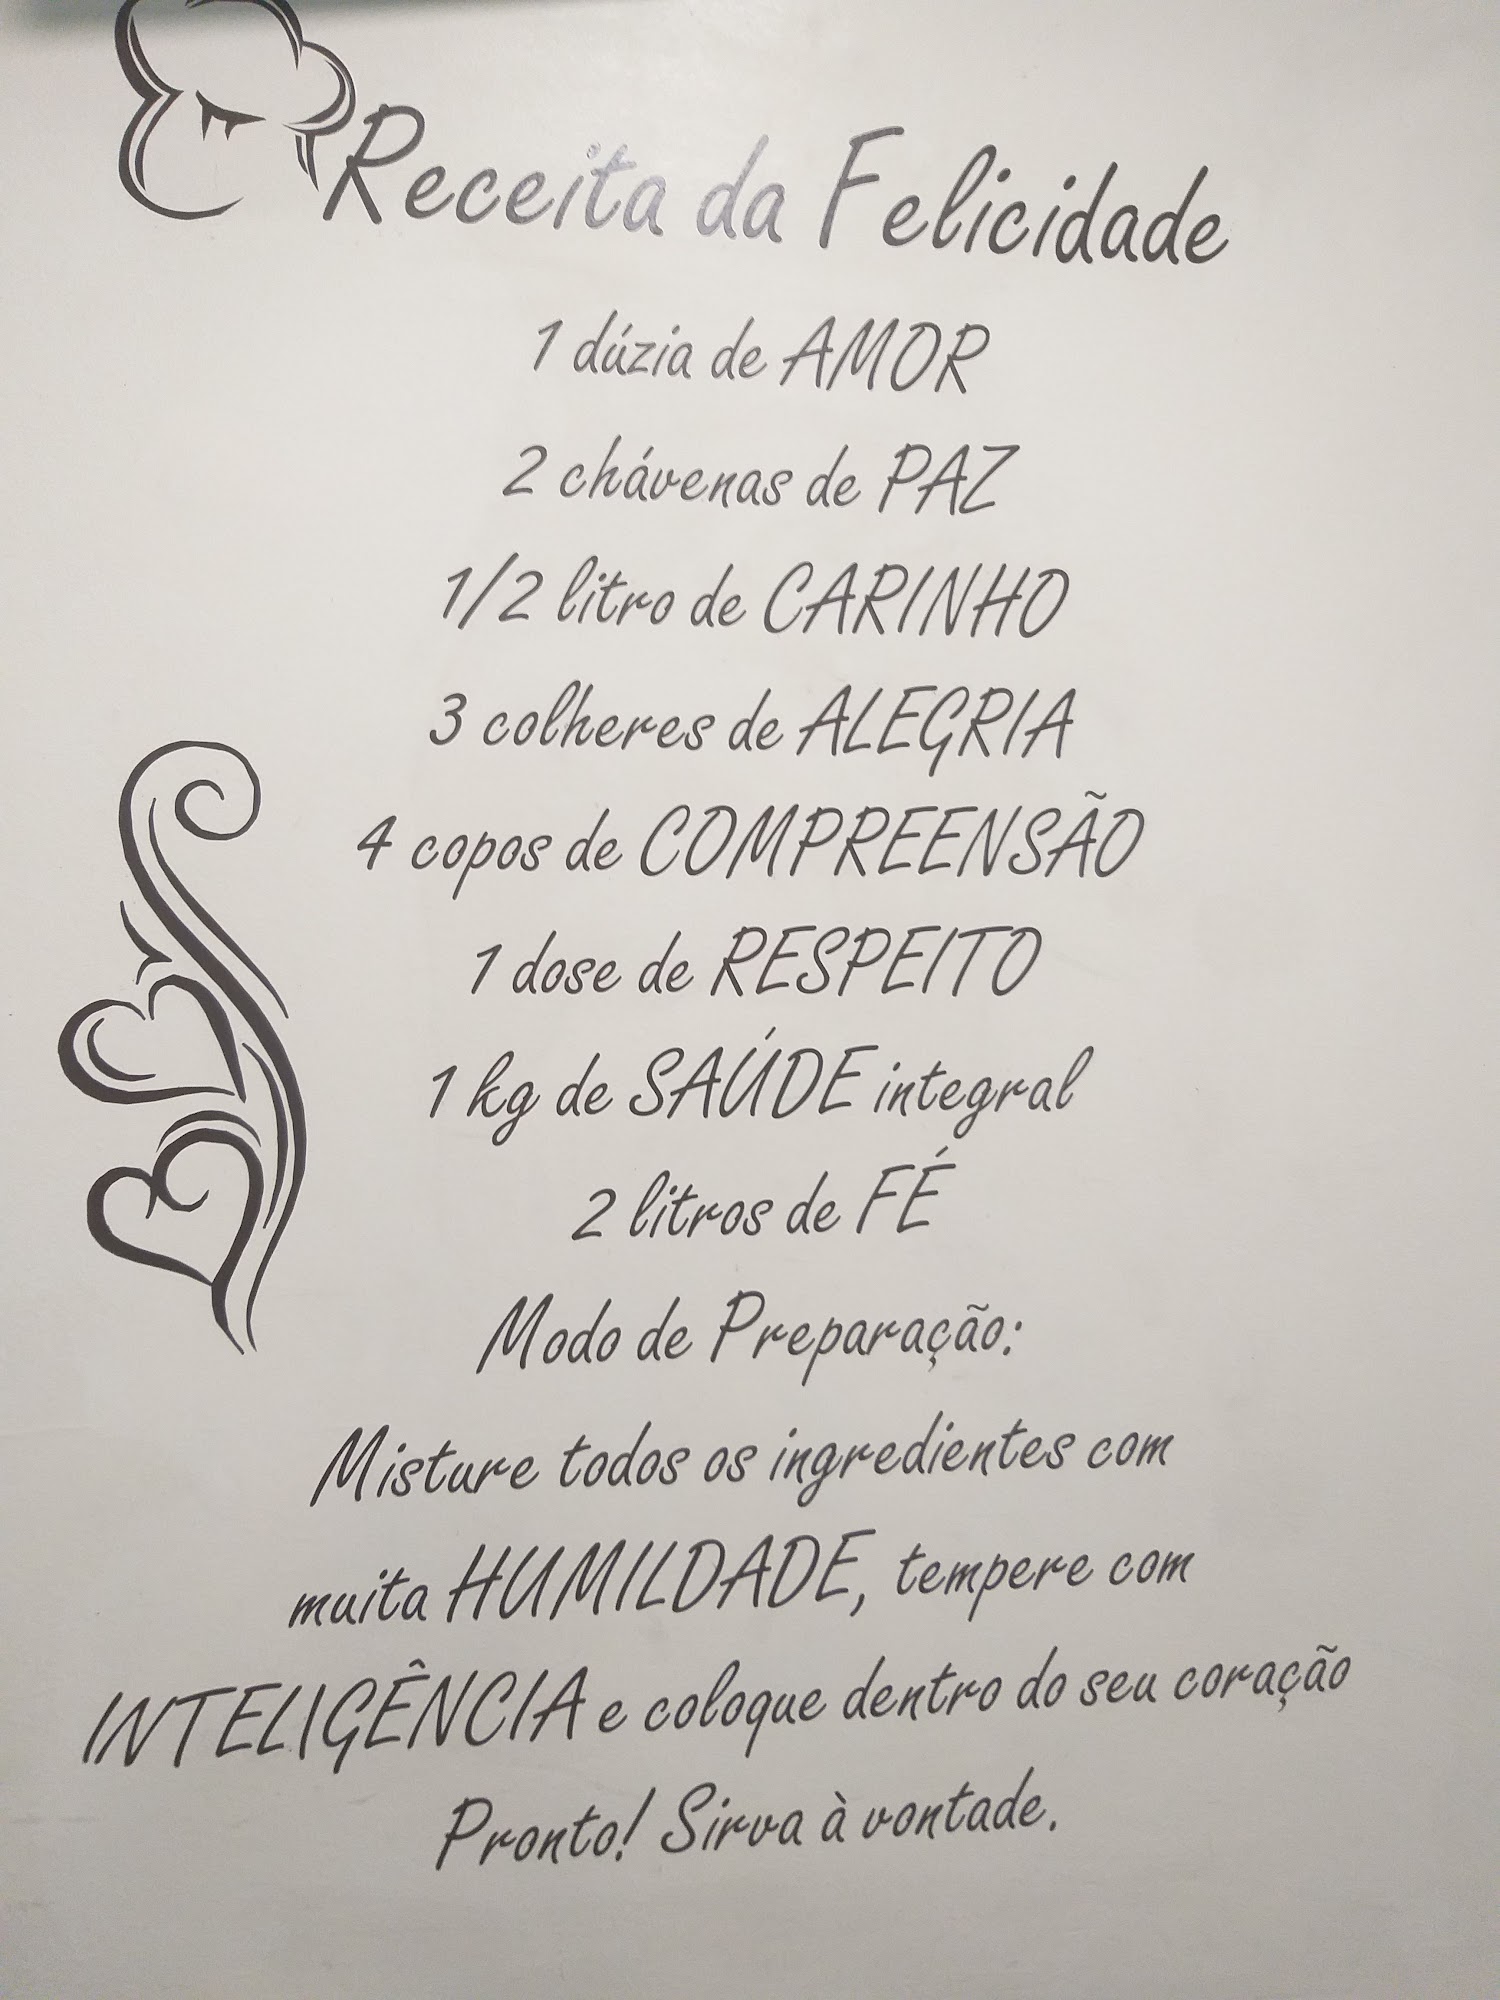 Receita da Felicidade
1 dúzia de AMOR
2 chávenas de PAZ
1/2 litro de CARINHO
3 colheres de ALEGRIA
4 copos de COMPREENSÃO
1 dose de RESPEITO
1 kg de SAÚDE integral
2 litros de FÉ
Modo de Preparação:
Misture todos os ingredientes com
muita HUMILDADE, tempere com
INTELIGÊNCIA e coloque dentro do seu coração
Pronto! Sirva à vontade.